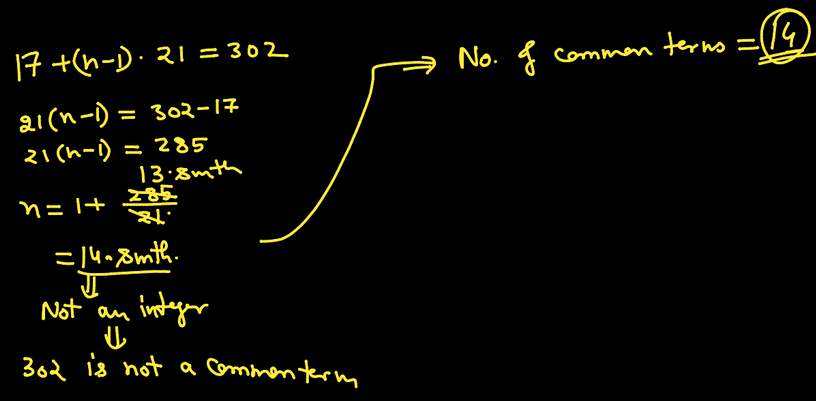 17 + (n-1) · 21 = 302
21(n-1) = 302-17
21(n-1) = 285
13.smth
n = 1 + 285/21
= 14.smth.
⇓
Not an integer
⇓
302 is not a common term
⇒ No. of common terms = 14